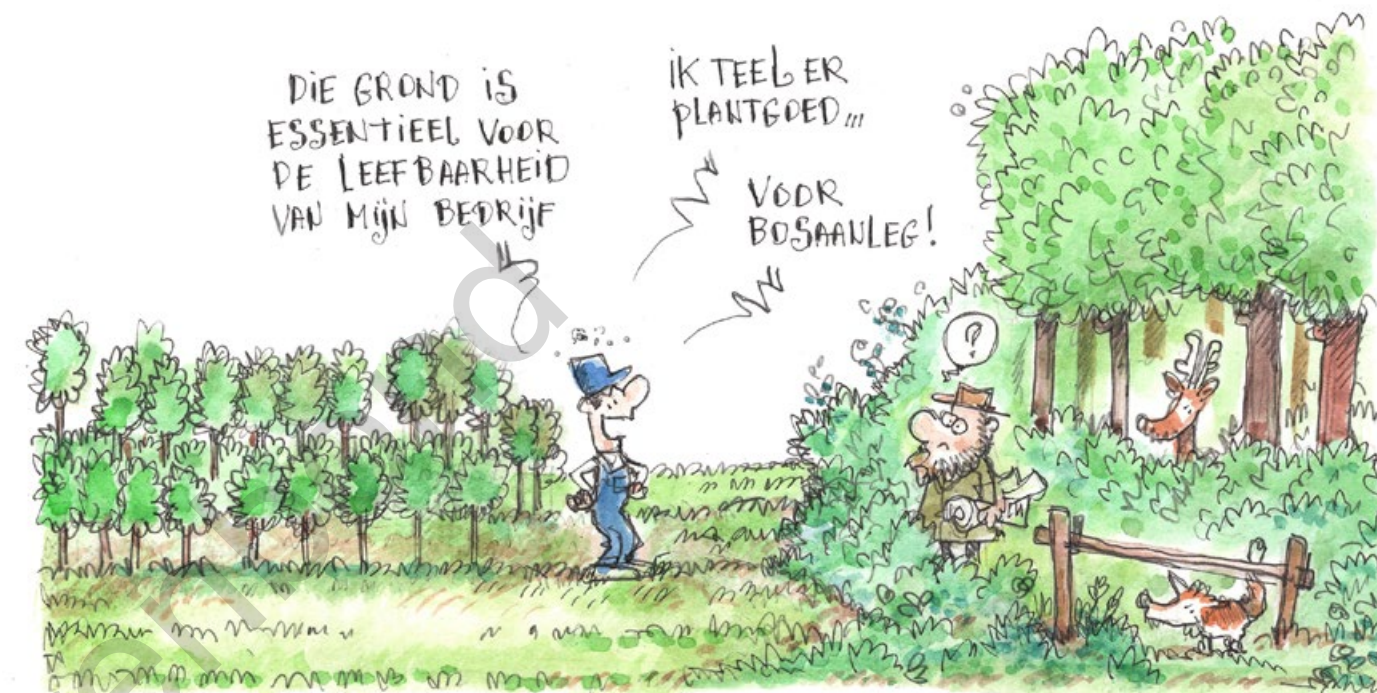 DIE GROND IS
ESSENTIEEL VOOR
DE LEEFBAARHEID
VAN MIJN BEDRIJF
IK TEEL ER
PLANTGOED...
VOOR
BOSAANLEG!
?